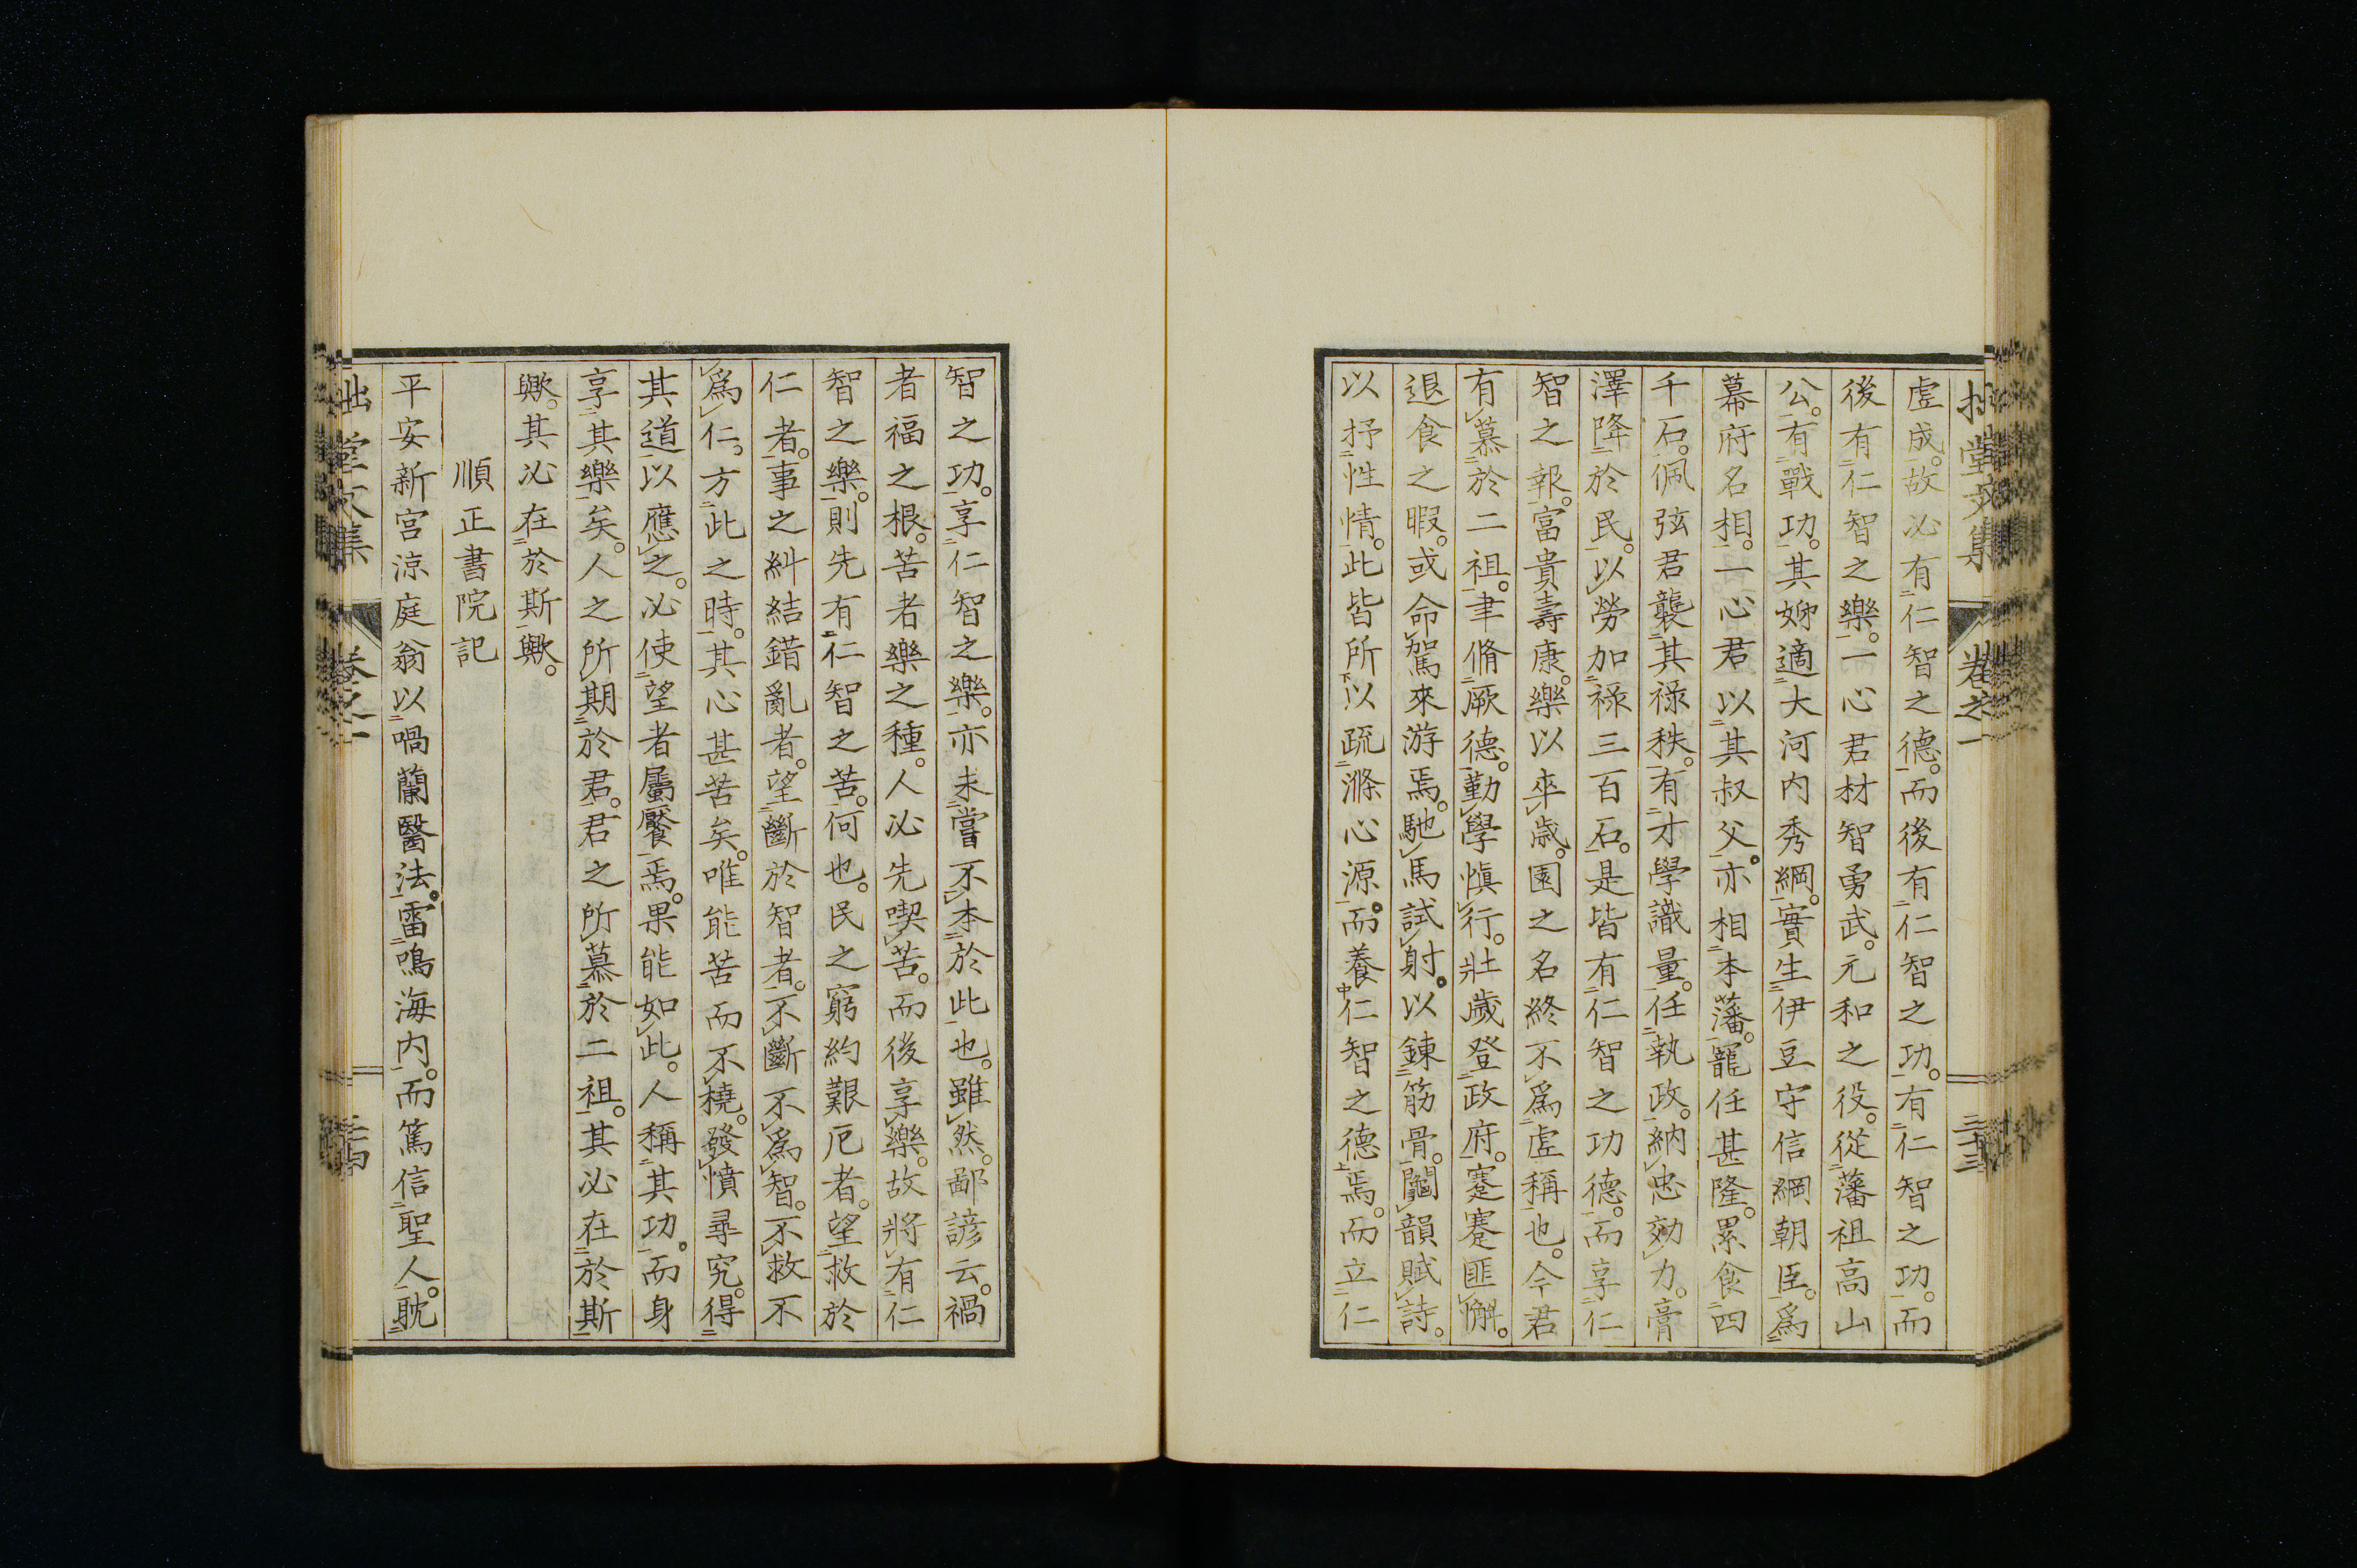 拙堂文集 卷之一 三十三
虛成。故必有仁智之德。而後有仁智之功。有仁智之功。而
後有仁智之樂。一心君材智勇武。元和之役。從藩祖高山
公。有戰功。其姉適大河内秀綱。實生伊豆守信綱朝臣。爲
幕府名相。一心君以其叔父。亦相本藩。寵任甚隆。累食四
千石。佩弦君襲其祿秩。有才學識量。任執政。納忠効力。膏
澤降於民。以勞加祿三百石。是皆有仁智之功德。而享仁
智之報。富貴壽康。樂以卒歲。園之名終不爲虛稱也。今君
有慕於二祖。聿脩厥德。勤學愼行。壯歲登政府。蹇蹇匪懈。
退食之暇。或命駕來游焉。馳馬試射。以錬筋骨。鬮韻賦詩。
以抒性情。此皆所以疏滌心源。而養仁智之德焉。而立仁
智之功。享仁智之樂。亦未嘗不本於此也。雖然。鄙諺云。禍
者福之根。苦者樂之種。人必先喫苦。而後享樂。故將有仁
智之樂。則先有仁智之苦。何也。民之窮約艱厄者。望救於
仁者。事之糾結錯亂者。望斷於智者。不斷不爲智。不救不
爲仁。方此之時。其心甚苦矣。唯能苦而不撓。發憤尋究。得
其道以應之。必使望者屬饜焉。果能如此。人稱其功。而身
享其樂矣。人之所期於君。君之所慕於二祖。其必在於斯
歟。其必在於斯歟。
順正書院記
平安新宮涼庭翁以喎蘭醫法。雷鳴海内。而篤信聖人。耽
拙堂文集 卷之一 三十四